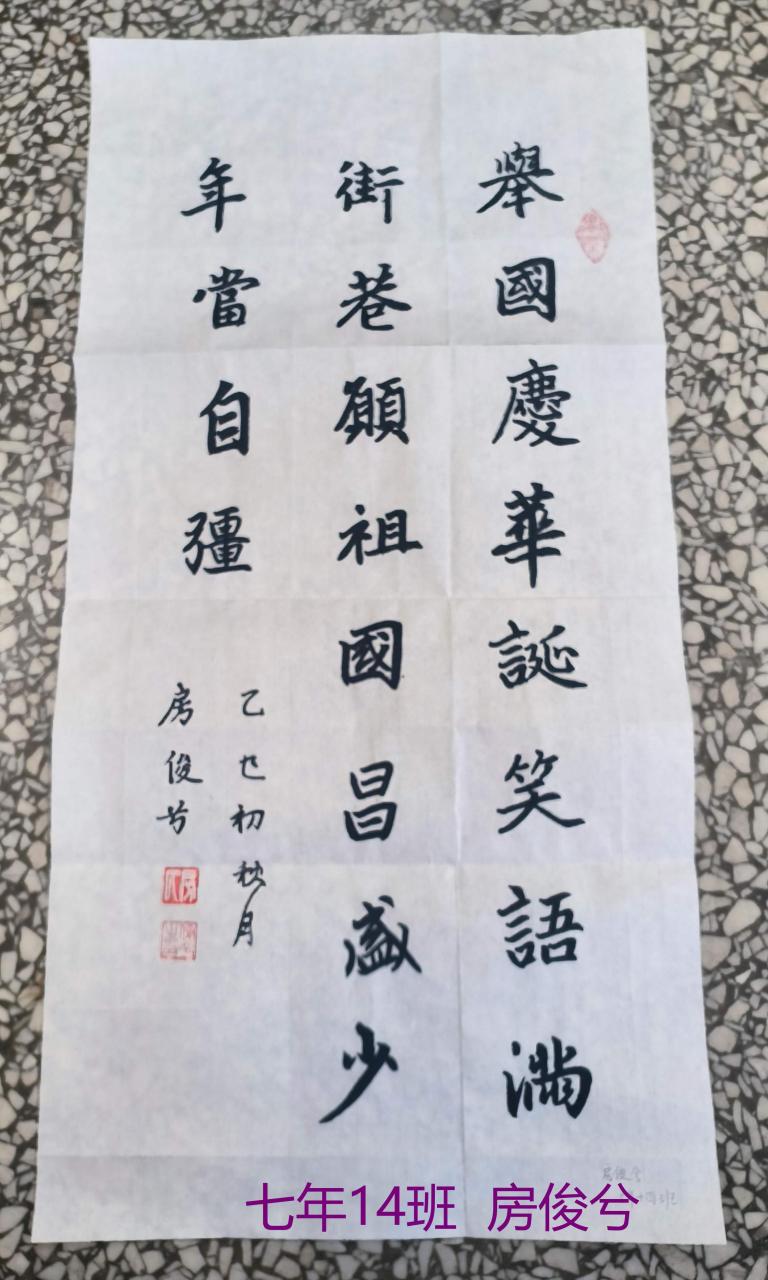 舉國慶華誕笑語滿
街巷願祖國昌盛少
年當自彊
乙巳初秋月
房俊兮
房俊兮
七年14班 房俊兮